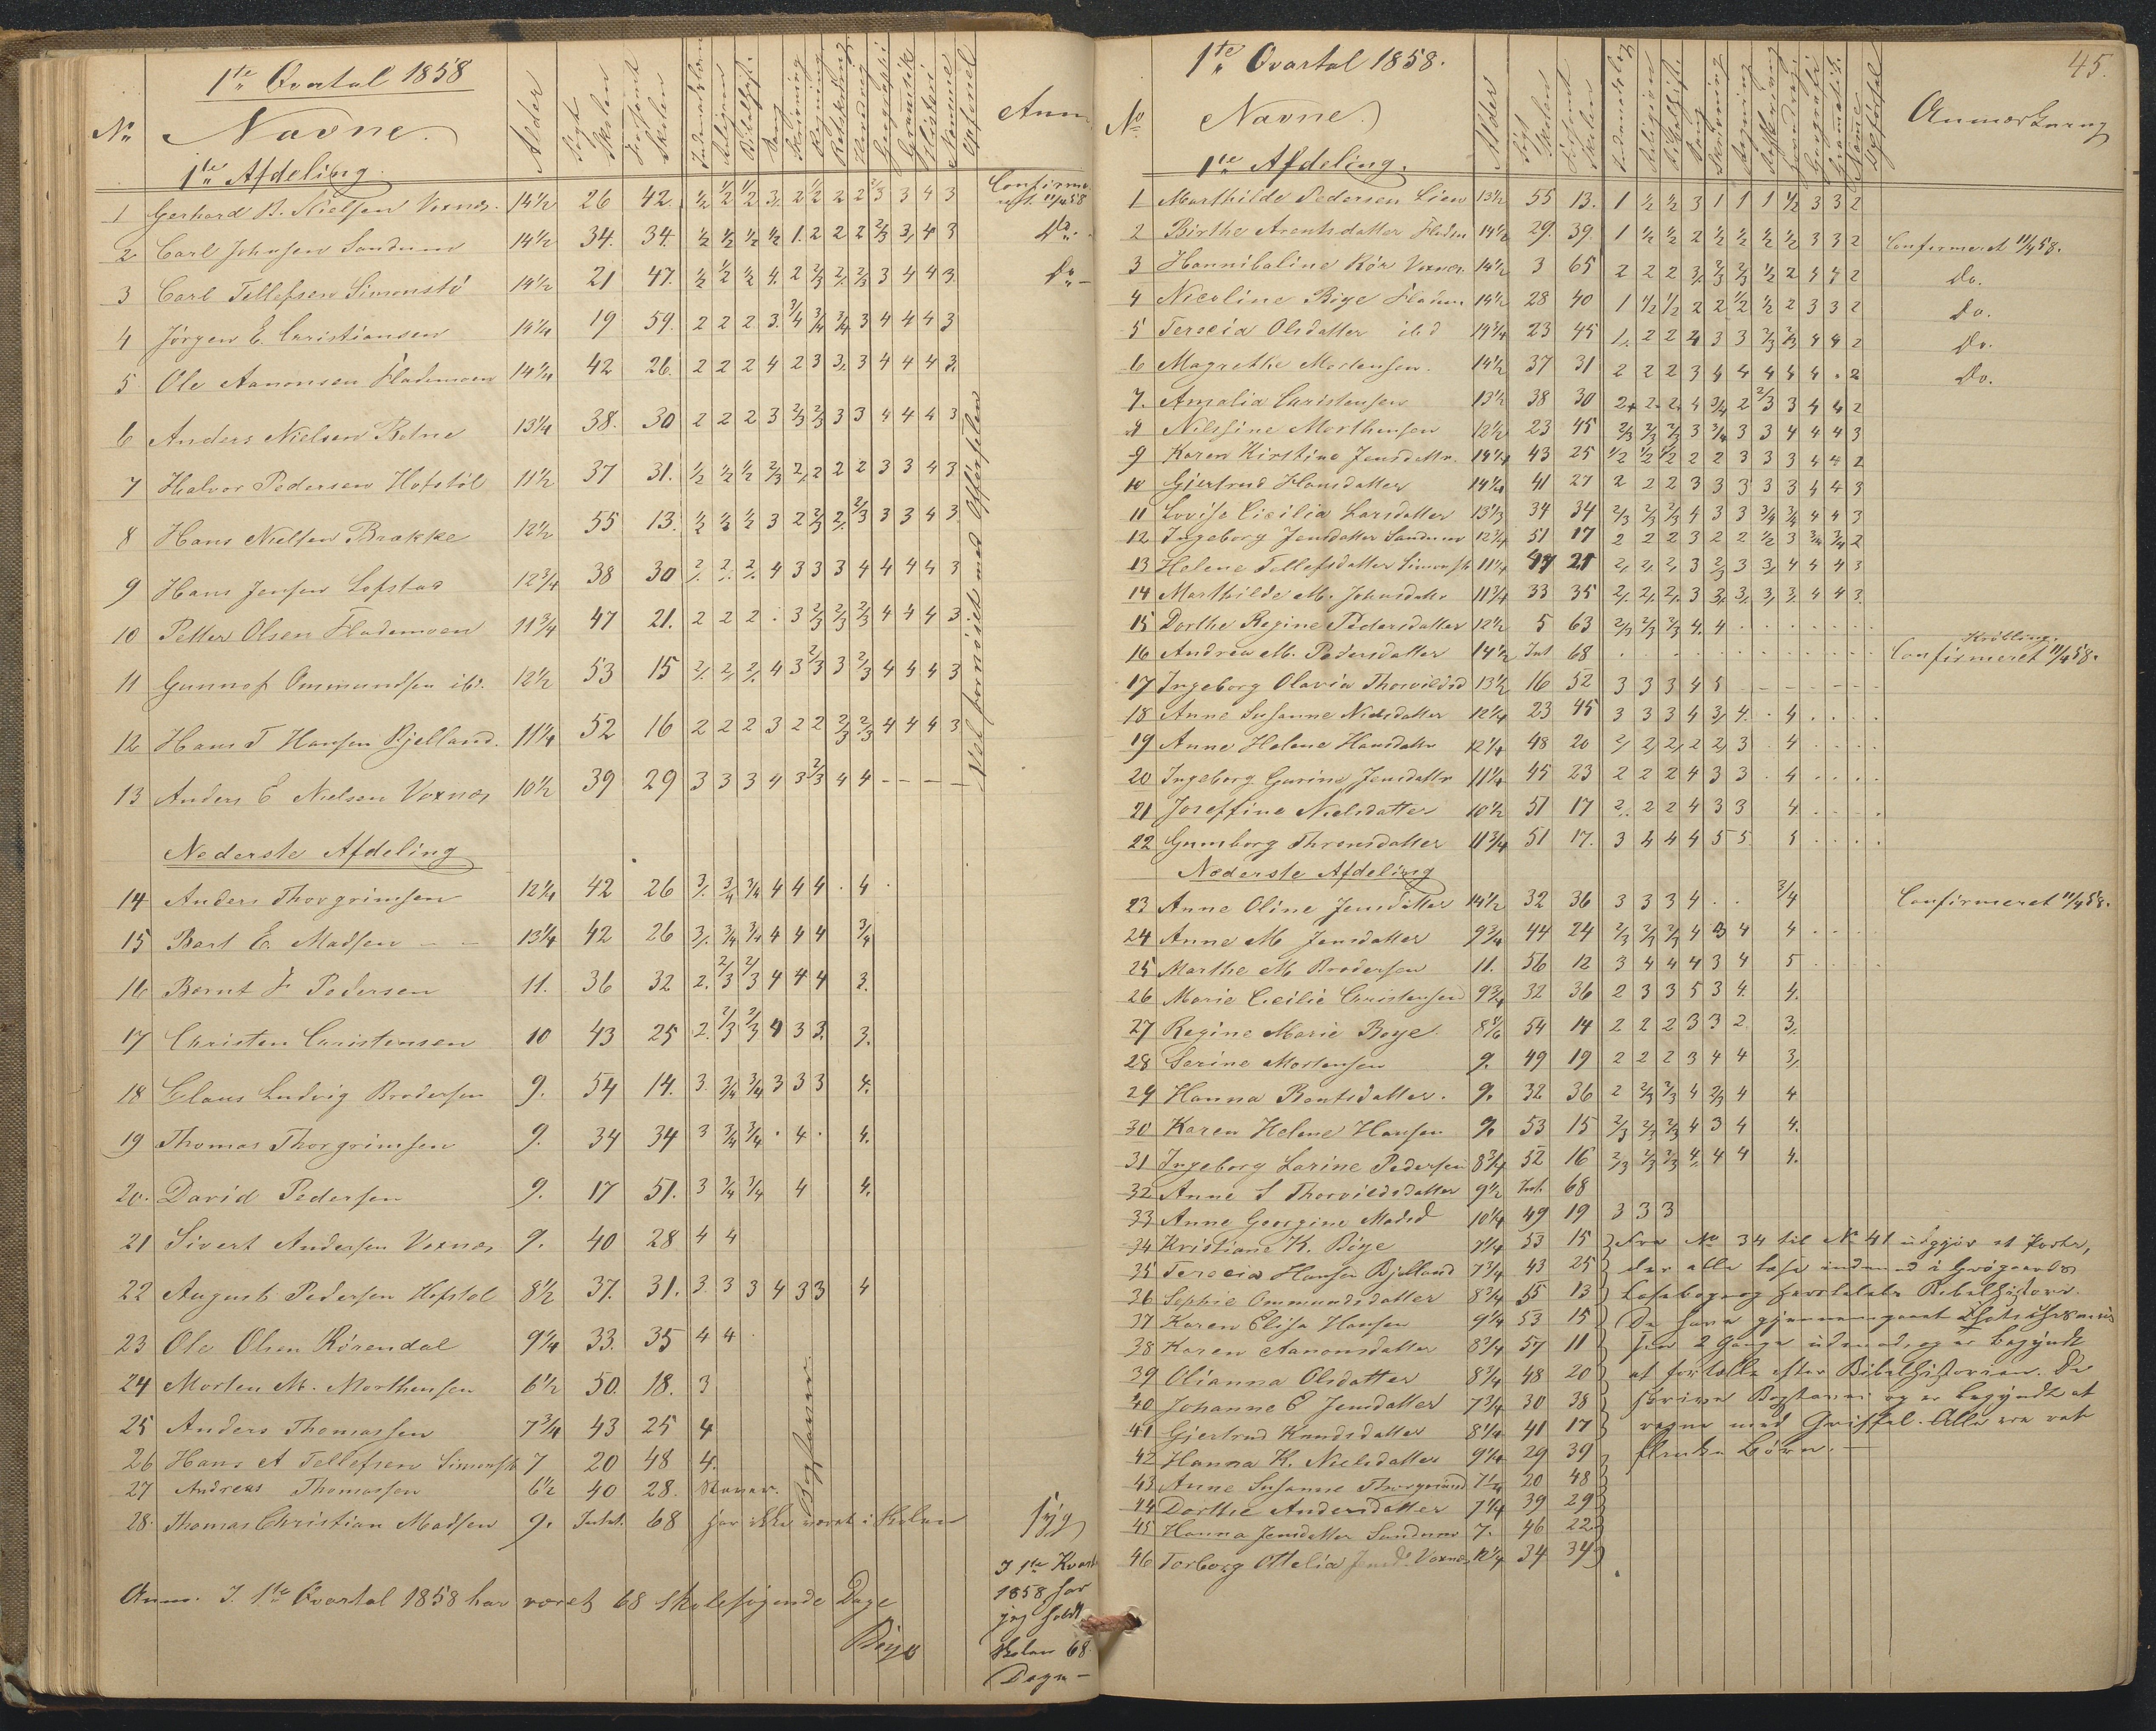 1te Qvartal 1858
No Navne. Alder Søgt Skolen Forsømt Skolen Religion Sang Skrivning Regning Geografi Gramatik Historie Opførsel Anm
1te Afdeling.
1 Gerhard B. Nielsen Voxnes. 14½ 26 42 ½ ½ ½ 3 2 ½ 2 2 2/3 3 4 3 Confirme
2 Carl Johnsen Sandum 14½ 34. 34. ½ ½ ½ ½ 1. 2 2 2 2/3 3 4 3 Do.
3 Carl Tellefsen Simonstö 14½ 21 47. ½ ½ ½ 4 2 2/3 2 2/3 3 4 4 3. Do
4 Jörgen E. Christiansen 14¼ 19 59. 2 2 2 3. 3/4 3/4 3/4 3 4 4 4 3
5 Ole Aanonsen Flademoen 14¼ 42 26. 2 2 2 4 2 3 3 3 4 4 4 3.
6 Anders Nielsen Botne 13¼ 38. 30 2 2 2 3 2/3 2/3 3 3 4 4 4 3
7 Halvor Pedersen Hofstöl 11½ 37 31. ½ ½ ½ 2/3 2 2 2 2 3 3 4 3
8 Hans Nielsen Brække 12½ 55 13. ½ ½ ½ 3 2 2/3 2 2/3 3 3 4 3
9 Hans Jensen Lofstad 12¾ 38 30 2 2 2 4 3 3 3 4 4 4 4 3
10 Petter Olsen Flademoen 11¾ 47 21. 2 2 2 . 3 2/3 2/3 2/3 4 4 4 3
11 Gunnof Ommundsen ibd. 12½ 53 15 2 2 2 4 3 2/3 3 2/3 4 4 4 3
12 Hans T Hansen Bjelland. 11¼ 52 16 2 2 2 3 2 2 2/3 2/3 4 4 4 3
13 Anders E Nielsen Voxnes 10½ 39 29 3 3 3 4 3 2/3 4 4 – – – –
Vel fornöiet med Opförselen
Nederste Afdeling
14 Anders Thorgrimsen 12¼ 42 26 3 3/4 3/4 4 4 4 . 4 .
15 Bart E. Madsen 13¼ 42 26 3 3/4 3/4 4 4 4 3/4
16 Bernt J Pedersen 11. 36 32 2. 2/3 2/3 4 4 4 3.
17 Christen Christensen 10 43 25 2. 2/3 2/3 4 3 3. 3.
18 Claus Ludvig Brodersen 9. 54 14. 3. 3/4 3/4 3 3 3 4.
19 Thomas Thorgrimsen 9. 34 34 3 3/4 3/4 . 4 . 4.
20. David Pedersen 9. 17 51. 3 3/4 3/4 4 4.
21 Sivert Andersen Voxnes 9. 40 28 4 4
22 August Pedersen Hofstöl 8½ 37. 31. 3. 3 3 4 3 3 4
23 Ole Olsen Rörendal 9¼ 33. 35 4 4
24 Morten M. Morthensen 6½ 50. 18. 3
25 Anders Thomassen 7¾ 43 25 4
26 Hans A Tellefsen Simonstö 7 20 48 4.
27 Andreas Thomassen 6½ 40 28. Staver.
Bogstaver.
28. Thomas Christian Madsen 9. Intet. 68 har ikke været i Skolen Syg
Anm. I 1ste Qvartal 1858 har været 68 skolesøgende Dage
Böye
I 1te Kvart
1858 har
jeg holdt
Skolen 68
Dage –
45.
1te Qvartal 1858.
No Navne. Alder Søgt Skolen Forsømt Skolen Religion Sang Skrivning Regning Geografi Gramatik Opførsel Anmærkning
1te Afdeling.
1 Marthilde Pedersen Lien 13½ 55 13. 1 ½ ½ 3 1 1 1 ½ 3 3 2
2 Birthe Arentsdatter Fladem 14½ 29. 39. 1 ½ ½ 2 ½ ½ ½ ½ 3 3 2 Confirmeret 11/4 58.
3 Hannibaline Rör Voxnes. 14½ 3 65 2 2 2 3 2/3 2/3 ½ 2 4 4 2 Do.
4 Nicoline Böye 14½ 28 40 1 ½ ½ 2 2 ½ ½ 2 3 3 2 Do.
5 Terecia Olsdatter ibd 14¾ 23 45 1. 2 2 4 3 3 2/3 2/3 4 4 2 Do.
6 Magrethe Mortensen. 14½ 37 31 2 2 2 3 4 4 4 4 4 . 2 Do.
7. Amalia Christensen 13½ 38 30 2 2 2 4 3/4 2 2/3 3 4 4 2
8 Nilsine Morthensen 12½ 23 45 2/3 2/3 2/3 3 3/4 3 3 4 4 4 3
9 Karen Kirstine Jensdattr. 14¼ 43 25 ½ ½ ½ 2 2 3 3 3 4 4 2
10 Gjertrud Hansdatter 14¼ 41 27 2 2 2 3 3 3 3 3 4 4 3
11 Lovise Cicilia Larsdatter 13⅓ 34 34 2/3 2/3 2/3 4 3 3 3/4 3/4 4 4 3
12 Ingeborg Jensdatter Sandum 12¾ 51 17 2 2 2 3 2 2 ½ 3 3/4 3/4 2
13 Helene Tellefsdatter Simonstö 11¼ 47 21 2 2 2 3 2/3 3 3 4 4 4 3
14 Marthilde M. Johnsdatter 11¾ 33 35 2 2 2 3 3 3 3 3 4 4 3
15 Dorthe Regine Pedersdatter 12½ 5 63 2/3 2/3 2/3 4. 4 . . . . . .
16 Andrea M. Pedersdatter 14½ Int 68 . . . . . . . . Krölling. Confirmeret 11/4 58.
17 Ingeborg Olavia Thorvildsd 13½ 16 52 3 3 3 4 5 – – – – –
18 Anne Susanne Nielsdatter 12¼ 23 45 3 3 3 4 3 4. . 4 . . .
19 Anne Helene Hansdattr 12¼ 48 20 2 2 2 2 2 3 . 4 . . .
20 Ingeborg Gurine Jensdattr 11¼ 45 23 2 2 2 4 3 3 . 4 . . .
21 Joseffine Nielsdatter 10½ 51 17 2 2 2 4 3 3 4 . . .
22 Gumborg Thronsdatter 11¾ 51 17. 3 4 4 4 5 5 5 . . .
Næderste Afdeling
23 Anne Oline Jensdatter 14½ 32 36 3 3 3 4 . . 3/4 Confirmeret 11/4 58.
24 Anne M Jensdatter 9¾ 44 24 2/3 2/3 2/3 4 3 4 4 . . .
25 Marthe M Brodersen 11. 56 12 3 4 4 4 3 4 5 . . .
26 Marie Cecilie Christensen 9¾ 32 36 2 3 3 5 3 4. 4.
27 Regine Marie Böye. 8⅙ 54 14 2 2 2 3 3 2 3.
28 Serine Mortensen 9. 49 19 2 2 2 3 4 4 3.
29 Hanna Bentsdatter. 9. 32 36 2 2/3 2/3 4 2/3 4 4
30 Karen Helene Hansen 9. 53 15 2/3 2/3 2/3 4 3 4 4.
31 Ingeborg Larine Pedersen 8¾ 52 16 2/3 2/3 2/3 4 4 4 4.
32 Anne S Thorvildsdatter 9½ Int. 68
33 Anne Georgine Madsd 10¼ 49 19 3 3 3
34 Kristiane K. Böye 7¼ 53 15 Fra No 34 til No 41 udgjör et Partie,
35 Terecia Hansen Bjelland 7¾ 43 25 der alle læse indenad i Grögaards
36 Sophie Ommundsdatter 8¾ 55 13 Læsebog og Bibelhistorie.
37 Karen Elise Hansen 9¼ 53 15 De have gjennemgaaet
38 Karen Aanonsdatter 8¾ 57 11 2 Gange udenad, og er begyndt
39 Olianna Olsdatter 8¾ 48 20 at fortælle efter Bibelhistorien. De
40 Johanne E Jensdatter 7¾ 30 38 skrive Bogstaver og er begyndt at
41 Gjertrud Knudsdatter 8¼ 41 17 regne med Griffel. Alle ere rak
42 Hanna K. Nielsdatter 9¼ 29 39 flinke Börn. –
43 Anne Susanne Thorgrimsd 7½ 20 48
44 Dorthe Andersdatter 7¼ 39 29
45 Hanna Jensdatter Sandum 7. 46 22
46 Torborg Ottelia Jensd. Voxnes 12¼ 34 34